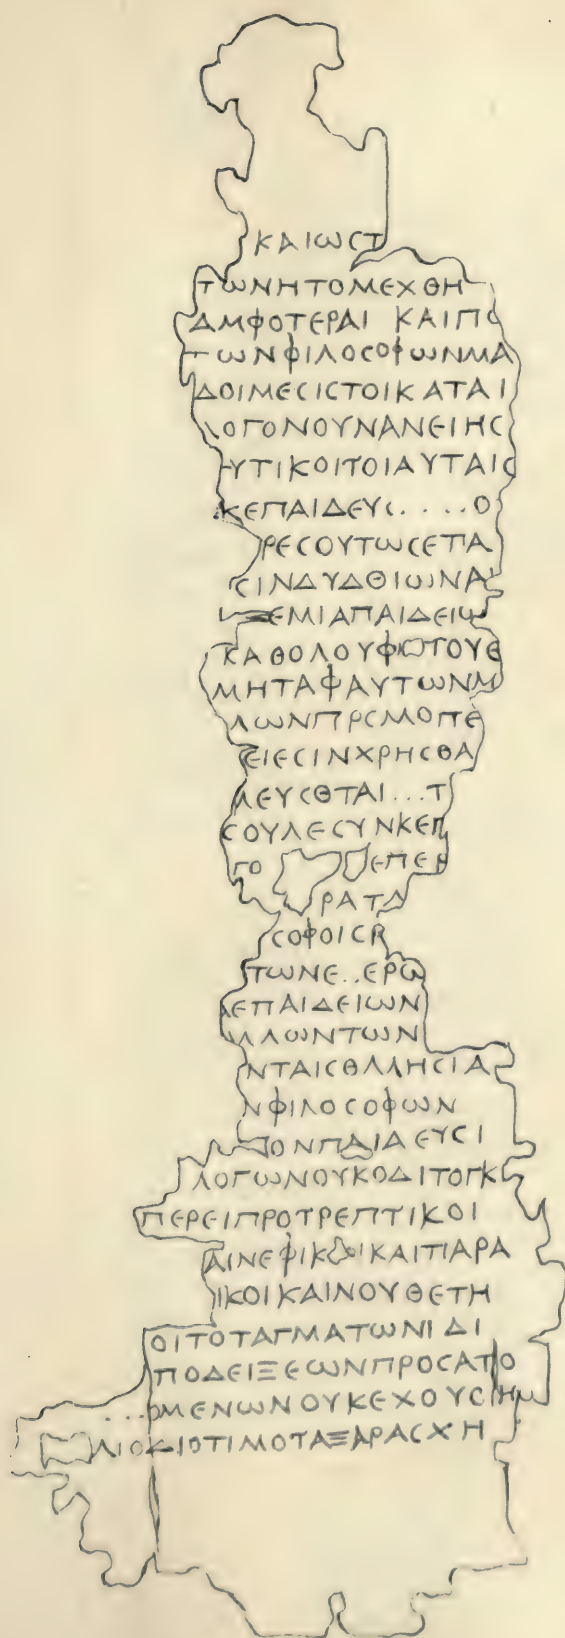 ΚΑΙωϹΤ
ΤωΝΗΤΟΜΕΧΘΗ
ΑΜΦΟΤΕΡΑΙ ΚΑΙΠΟ
ΤωΝΦΙΛΟϹΟΦωΝΜΑ
ΔΟΙΜΕϹΙϹΤΟΙΚΑΤΑΙ
ΛΟΓΟΝΟΥΝΑΝΕΙΗϹ
ΥΤΙΚΟΙΤΟΙΑΥΤΑΙϹ
ΚΕΠΑΙΔΕΥϹ....Ο
ΡΕϹΟΥΤωϹΕΠΑ
ϹΙΝΔΥΔΘΙωΝΑ
ΕΜΙΑΠΑΙΔΕΙω
ΚΑΘΟΛΟΥΦΙΟΤΟΥΕ
ΜΗΤΑΦΑΥΤωΝΜ
ΛωΝΠΡϹΜΟΠΕ
ΕΙΕϹΙΝΧΡΗϹΘΑ
ΛΕΥϹΘΤΑΙ...Τ
ϹΟΥΛΕϹΥΝΚΕΠ
ΓΟ ΕΠΕΡ
ΡΑΤΑ
ϹΟΦΟΙϹΚ
ΤωΝΕ..ΕΡω
ΕΠΑΙΔΕΙωΝ
ΛΛωΝΤωΝ
ΝΤΑΙϹΘΛΛΗϹΙΑ
ΝΦΙΛΟϹΟΦωΝ
ΟΝΠΑΙΑΕΥϹΙ
ΛΟΓωΝΟΥΚΟΔΙΤΟΓΚ
ΠΕΡΕΙΠΡΟΤΡΕΠΤΙΚΟΙ
ΑΙΝΕΦΙΚΟΙΚΑΙΠΑΡΑ
ΙΚΟΙΚΑΙΝΟΥΘΕΤΗ
ΟΙΤΟΤΑΓΜΑΤωΝΙΔΙ
ΠΟΔΕΙΞΕωΝΠΡΟϹΑΤΟ
...ΟΜΕΝωΝΟΥΚΕΧΟΥϹΗ
ΛΙΟΚΙΟΤΙΜΟΤΑΞΑΡΑϹΧΗ